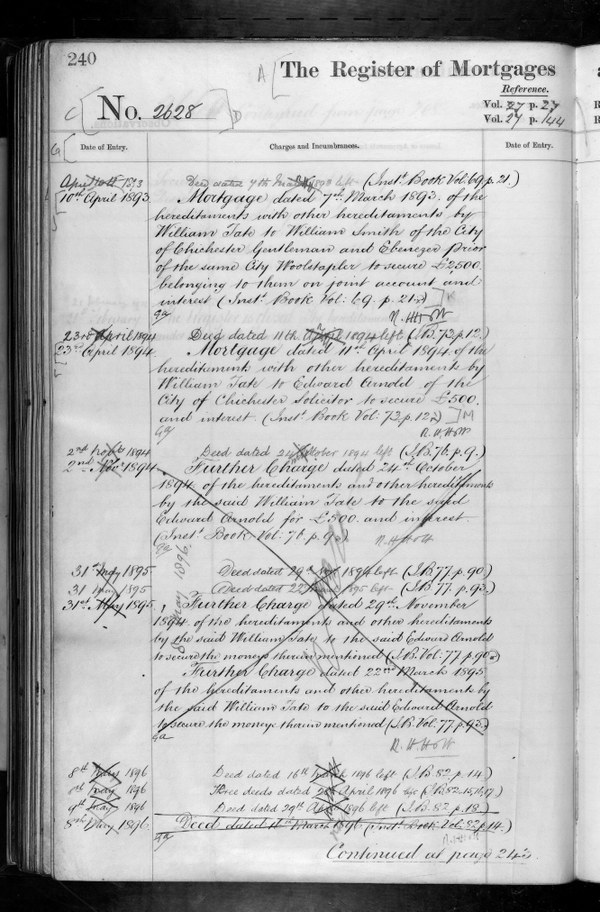 240
A [ The Register of Mortgages
Reference.
C [ No. 2628 ] D
Vol. 27 p. 27
Vol. 27 p. 144
G [ Date of Entry.
Charges and Incumbrances.
Date of Entry.
April 10th 1893
Deed dated 7th March 1893 left (Inst. Book Vol. 69. p. 21.)
10th April 1893.
Mortgage dated 7th March 1893. of the
hereditaments with other hereditaments by
William Tate to William Smith of the City
of Chichester Gentleman and Ebenezer Prior
of the same City Woolstapler to secure £2,500.
belonging to them on joint account and
interest (Inst. Book Vol: 69. p. 21.)
23rd April 1894
Deed dated 11th April 1894 left (I.B. 72. p. 12.)
23rd April 1894.
Mortgage dated 11th April 1894 of the
hereditaments with other hereditaments by
William Tate to Edward Arnold of the
City of Chichester Solicitor to secure £500.
and interest. (Inst. Book Vol: 72. p. 12.) ] M
2nd Novr 1894
Deed dated 24 October 1894 left (I.B. 76. p. 9.)
2nd Novr 1894.
Further Charge dated 24th October
1894 of the hereditaments and other hereditaments
by the said William Tate to the said
Edward Arnold for £500. and interest.
(Inst. Book Vol: 76. p. 9.)
8 May 1896.
31st May 1895.
Deed dated 29th Nov 1894 left (I.B. 77. p. 90.)
31 May 1895
Deed dated 22 March 1895 left (I.B. 77. p. 93.)
31st May 1895.
Further Charge dated 29th November
1894. of the hereditaments and other hereditaments
by the said William Tate to the said Edward Arnold
to secure the moneys therein mentioned (I.B. Vol: 77. p. 90.)
Further Charge dated 22nd March 1895
of the hereditaments and other hereditaments by
the said William Tate to the said Edward Arnold
to secure the moneys therein mentioned (I.B. Vol. 77. p. 93.)
8th May 1896
Deed dated 16th March 1896 left (I.B. 82. p. 14.)
8th May 1896
Three deeds dated April 1896 left (I.B. 82.15,16,17)
9th May 1896
Deed dated 29th April 1896 left (I.B. 82. p. 18.)
8th May 1896.
Deed dated 16th March 1896 (Inst. Book Vol: 82. p. 14.)
Continued at page 243.